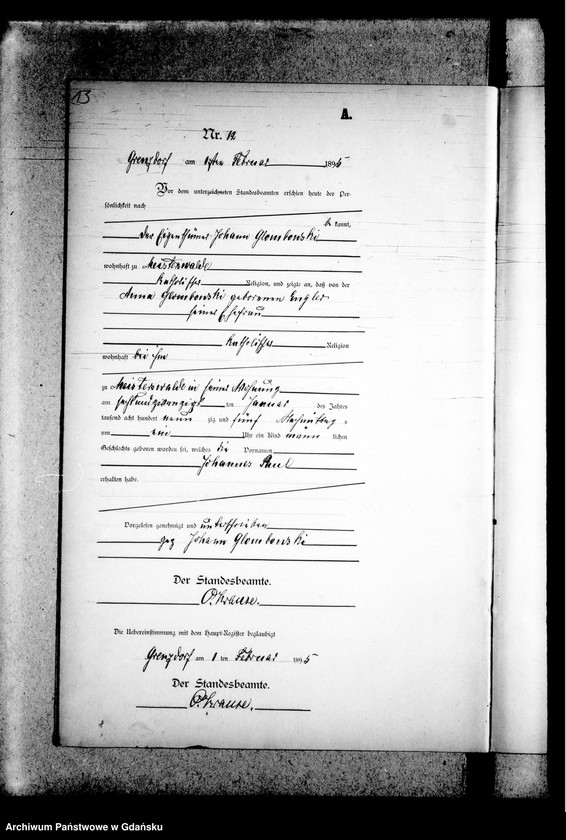 13
A.
Nr. 12
Grenzdorf am 1sten Februar 1895
Vor dem unterzeichneten Standesbeamten erschien heute der Per-
sönlichkeit nach
be kannt,
der Eigenthümer Johann Glombowski
wohnhaft zu Meisterswalde
katholischer Religion, und zeigte an, daß von der
Anna Glombowski geborenen Engler
seiner Ehefrau
katholischer Religion
wohnhaft bei ihm
zu Meisterswalde in seiner Wohnung
am sechsundzwanzigsten Januar des Jahres
tausend acht hundert neun zig und fünf Nachmittags
um ein Uhr ein Kind männ lichen
Geschlechts geboren worden sei, welches die Vornamen
Johannes Paul
erhalten habe.
Vorgelesen genehmigt und unterschrieben
gez Johann Glombowski
Der Standesbeamte.
O. Krause.
Die Uebereinstimmung mit dem Haupt-Register beglaubigt
Grenzdorf am 1 ten Februar 1895
Der Standesbeamte.
O. Krause.
Archiwum Państwowe w Gdańsku